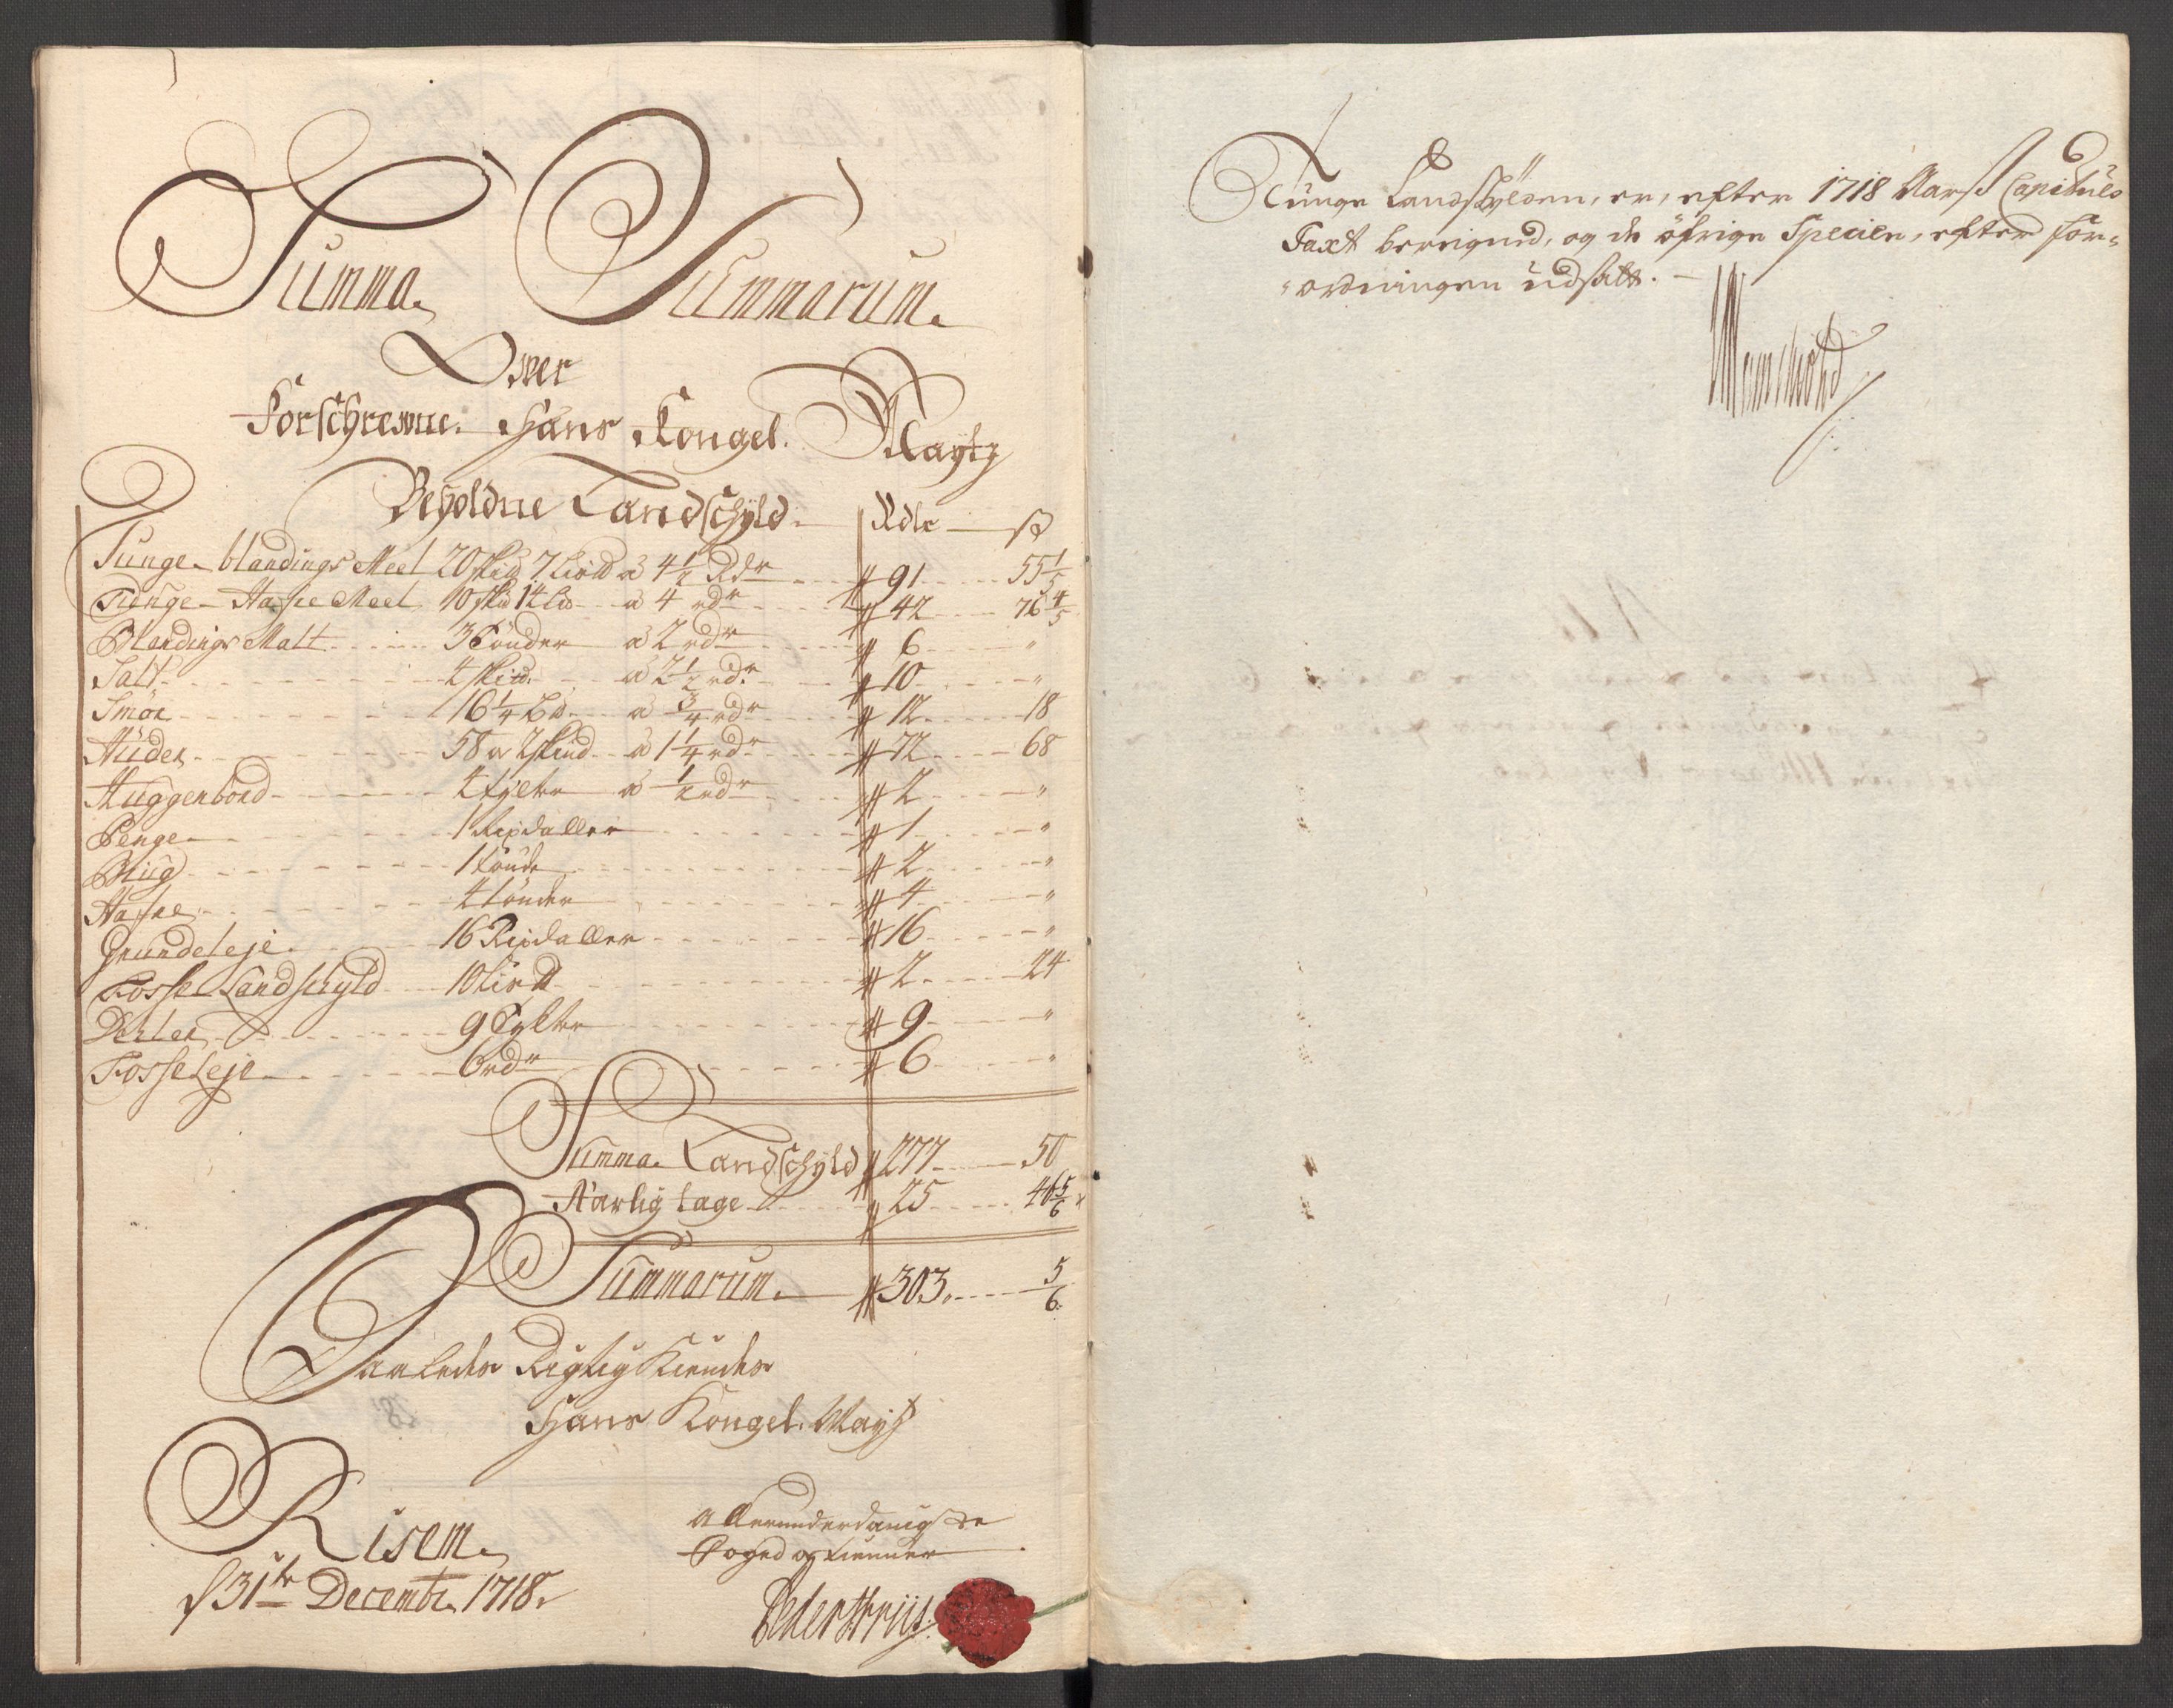 Summa Summarum
Over
Forschrewne Hans Kongel. Maytz
Beholdne Landschyld. Rdlr ß
Tunge-blandings Meel 20 skid 7 Lisd a 4 1/2 Rdr 91 55 1/5
Tunge-Hafre Meel 10 skid 14 Lis a 4 rdr 42 76 4/5
Blandings Malt 3 Tønder a 2 rdr 6 "
Salt 4 skid. a 2 1/2 rdr 10 "
Smör 16 1/4 Lis a 3/4 rdr 12 18
Huder 58 a 2 skind a 1 1/4 rdr 72 68
Huggenbord 4 tylter a 1/2 rdr 2 "
Penge 1 Rixdaller 1 "
Biug 1 tönde 2 "
Hafre 4 tönder 4 "
Grundeleje 16 Rixdaller 16 "
Fosse Landschyld 10 2 24
Deeler 9 Tylter 9 "
Fosseleje 6 rdr 6 "
Summa Landschyld 277 50
Aarlig tage 25 46 5/6
Summarum 303 5/6
Saaledes Rigtig Kiendes
Hans Kongel. Mayt
Risem
d 31te Decembr. 1718.
Allerunderdanigste
Foged og tienner
Peder Friis
Tunge Landskylden, er, efter 1718 Aarß Capituls
Taxt beregned, og de öfrige Specier, efter for-
ordningen udsatt.